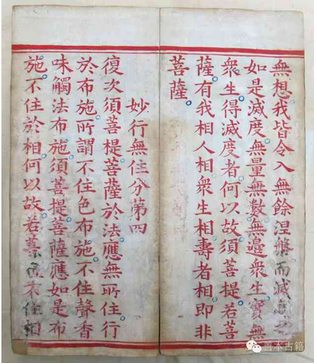 無想我皆令入無餘涅槃而滅度之
如是滅度無量無數無邊衆生實無
衆生得滅度者何以故須菩提若菩
薩有我相人相衆生相壽者相即非
菩薩
妙行無住分第四
復次須菩提菩薩於法應無所住行
於布施所謂不住色布施不住聲香
味觸法布施須菩提菩薩應如是布
施不住於相何以故若菩薩不住相
善本古籍